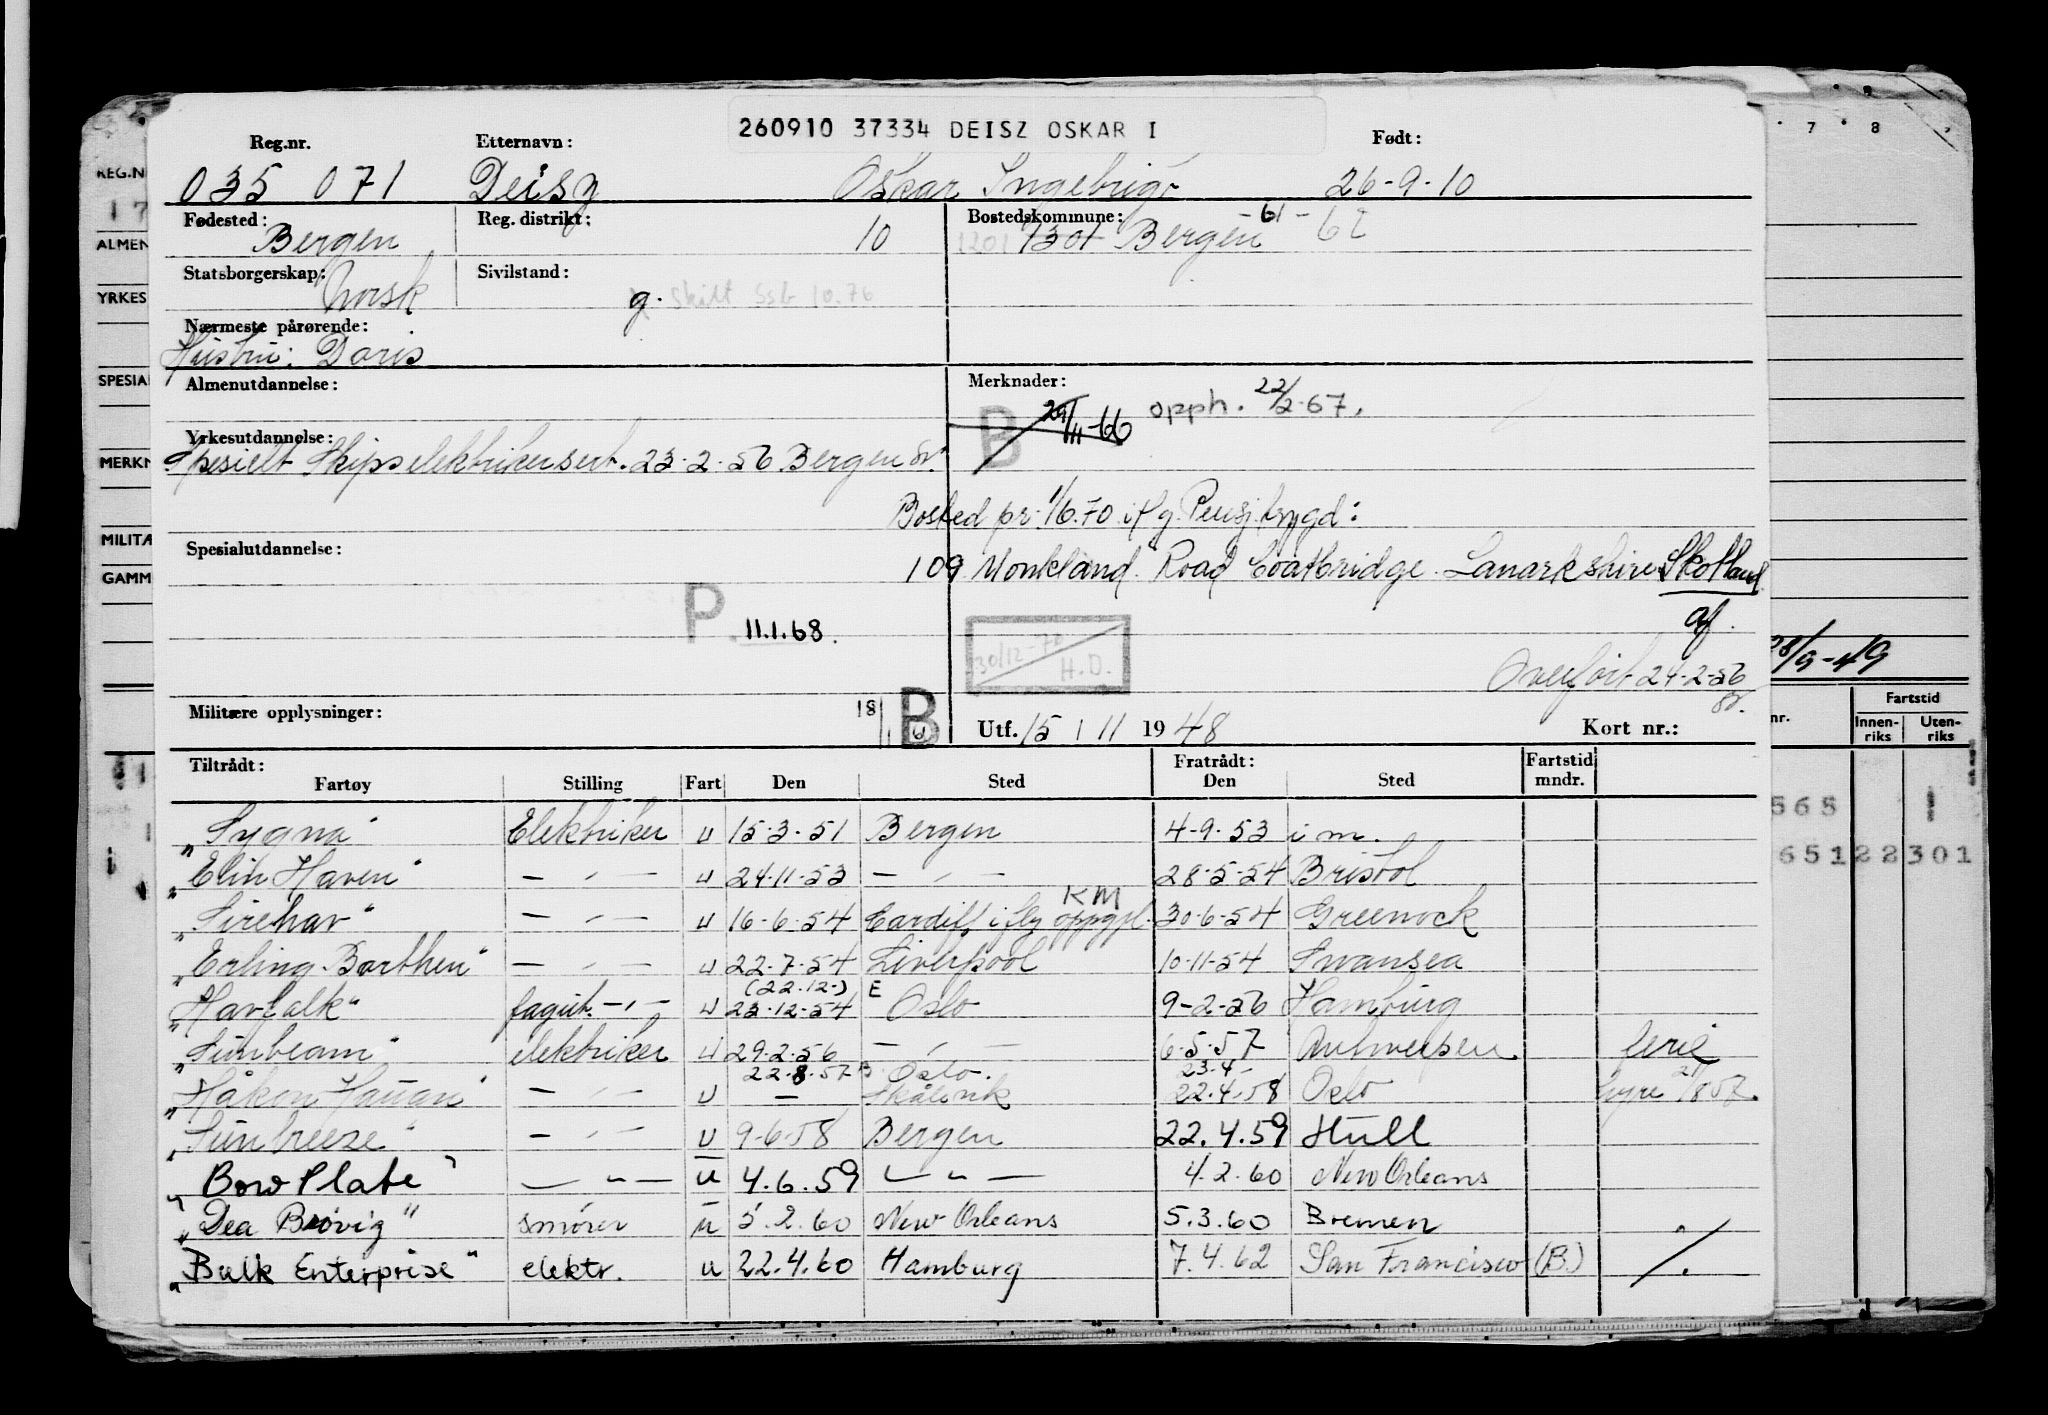 260910 37334 DEISZ OSKAR I
Reg.nr. Etternavn: Født:
035 071 Deisz Oskar Ingebrigt 26-9-10
Fødested: Reg. distrikt: Bostedskommune: -61-62
Bergen 10 1201 1301 Bergen
Statsborgerskap: Sivilstand:
Norsk g. Skilt Ssb 10.76
Nærmeste pårørende:
Hustru: Doris
Almenutdannelse: Merknader:
B 29/11-66 opph. 22/2-67.
Yrkesutdannelse:
Spesielt Skipselektrikersert. 23-2-56 Bergen
Bosted pr. 1/6.70 iflg. Pensj.trygd:
Spesialutdannelse:
109 Monkland Road Coatbridge. Lanarkshire Skotland
af.
P. 11.1.68.
30/12-70 H.D.
Overført 24-2-56
Militære opplysninger: 18 B
Utf. 15 / 11 1948 Kort nr.:
Tiltrådt: Fratrådt: Fartstid
Fartøy Stilling Fart Den Sted Den Sted mndr.
"Sygna" Elektriker u 15-3-51 Bergen 4-9-53 i m.
"Elin Haven" — " — u 24-11-53 — " — 28-5-54 Bristol
KM
"Sirehav" — " — u 16-6-54 Cardiff iflg oppgj. 30-6-54 Greenock
"Erling Borthen" — " — u 22-7-54 Liverpool 10-11-54 Swansea
(22.12-) E
"Havfalk" fagut. — " — u 23-12-54 Oslo 9-2-56 Hamburg
"Sunbeam" elektriker u 29-2-56 — " — 6-5-57 Antwerpen ferie
22-8-57 Oslo. 23.4-
"Håkon Hauan" — " — u — Skålevik 22.4.58 Oslo hyre 21/8 57.
"Sunbreeze" — " — u 9-6-58 Bergen 22.4.59 Hull
"Bow Plate" — " — u 4.6.59 — " — 4.2.60 New Orleans
"Dea Brøvig" smører u 5.2.60 New Orleans 5.3.60 Bremen
"Bulk Enterprise" elektr. u 22.4.60 Hamburg 7.4.62 San Francisco (B.) ./.
REG.N
17
ALMEN
YRKES
SPESIAL
MERKN
MILITÆ
GAMM
7 8
28/9-49
nr. Fartstid
Innenriks Utenriks
565 1
65122301